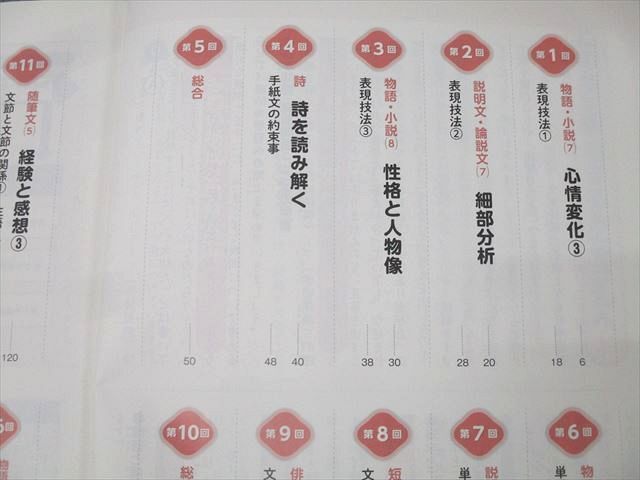 第1回
物語・小説(7) 心情変化③
6
表現技法①
18
第2回
説明文・論説文(7) 細部分析
20
表現技法②
28
第3回
物語・小説(8) 性格と人物像
30
表現技法③
38
第4回
詩 詩を読み解く
40
手紙文の約束事
48
第5回
総合
50
第11回
随筆文(5) 経験と感想③
文節と文節の関係
120
第6回
物
単
第7回
説
単
第8回
短
文
第9回
俳
文
第10回
総